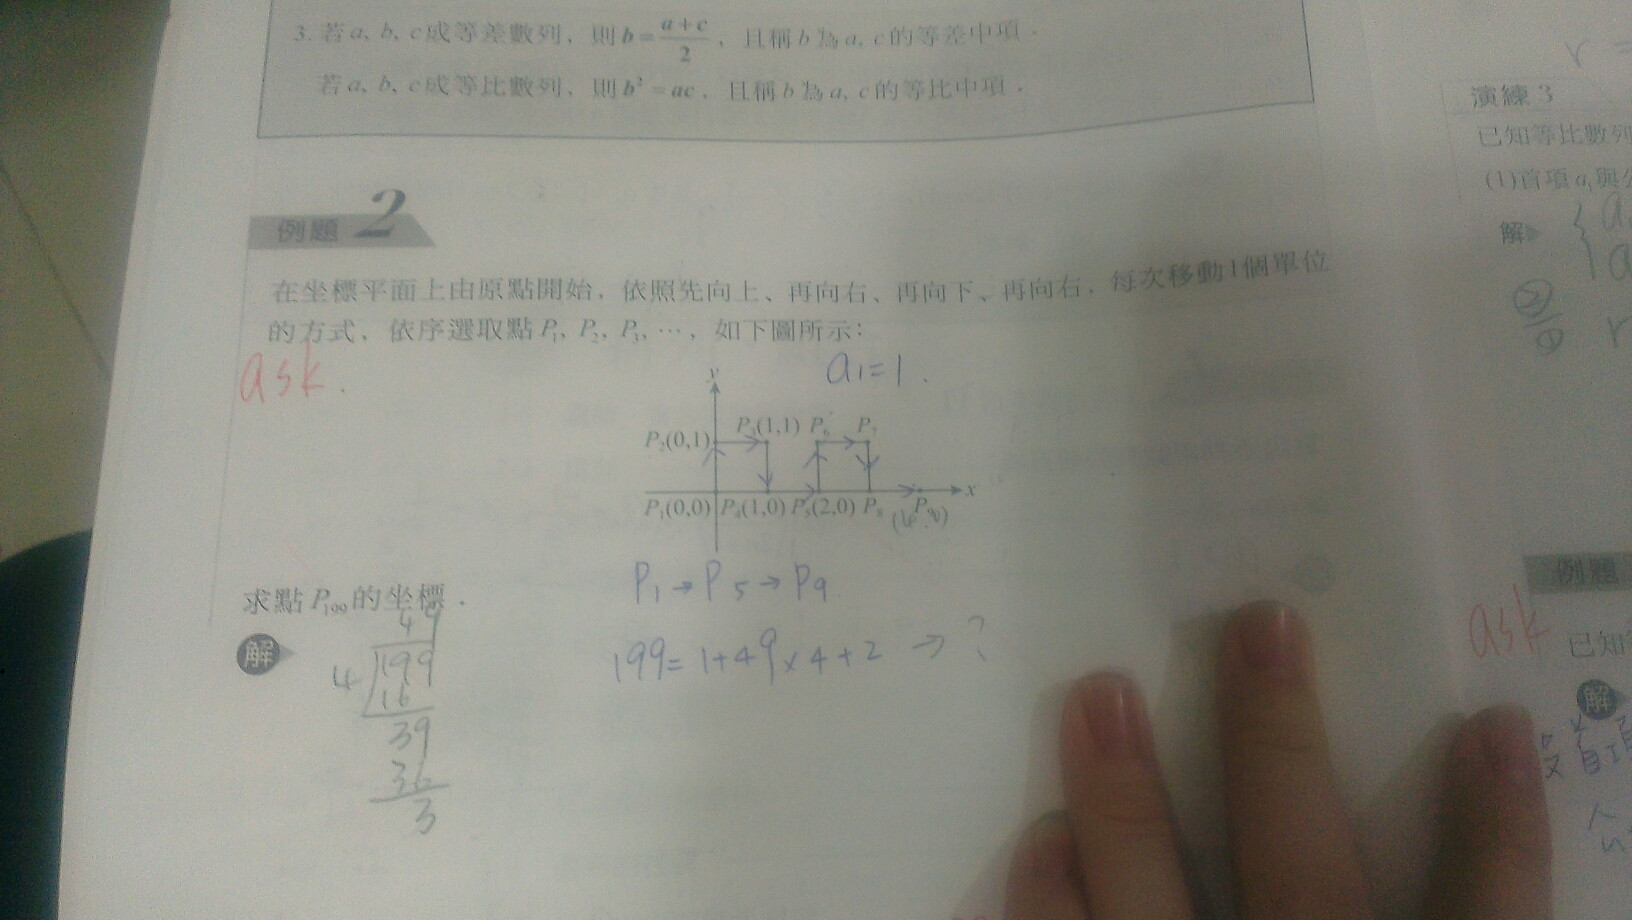 3. 若a, b, c成等差數列，則b=\frac{a+c}{2}，且稱b為a, c的等差中項．
若a, b, c成等比數列，則b²=ac，且稱b為a, c的等比中項．
例題 2
在坐標平面上由原點開始，依照先向上、再向右、再向下、再向右，每次移動1個單位
的方式，依序選取點P₁, P₂, P₃, …，如下圖所示：
ask.
a₁=1.
y
P₂(0,1) P₃(1,1) P₆ P₇
x
P₁(0,0) P₄(1,0) P₅(2,0) P₈ P₉
(4,0)
P₁→P₅→P₉
求點P₁₉₉的坐標．
解
49
4 199
16
39
36
3
199=1+49×4+2 → ?
r =
演練3
已知等比數列
(1)首項a₁與
解
②
①
r
例題
ask
已知
解
沒首項